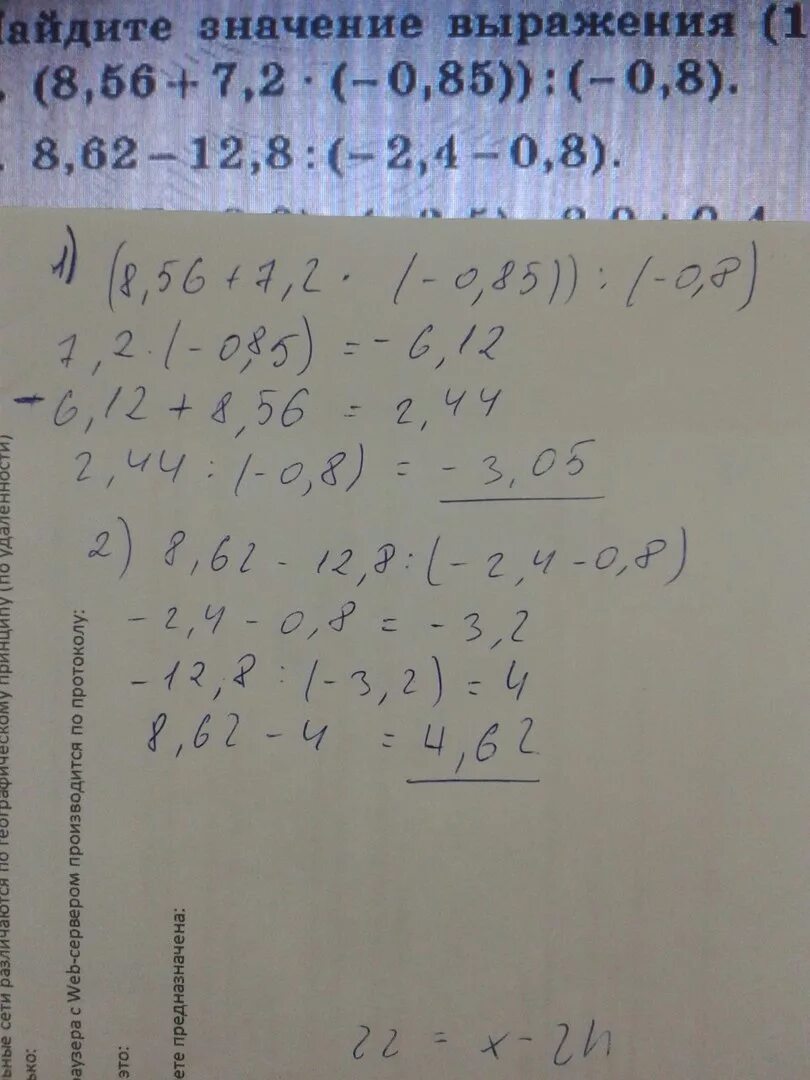 айдите значение выражения (1
. (8,56 + 7,2 · (−0,85)) : (−0,8).
. 8,62 − 12,8 : (−2,4 − 0,8).
1) (8,56 + 7,2 · (−0,85)) : (−0,8)
7,2 · (−0,85) = −6,12
−6,12 + 8,56 = 2,44
2,44 : (−0,8) = −3,05
2) 8,62 − 12,8 : (−2,4 − 0,8)
−2,4 − 0,8 = −3,2
−12,8 : (−3,2) = 4
8,62 − 4 = 4,62
ьные сети различаются по географическому принципу (по удаленности)
ько:
аузера с Web-сервером производится по протоколу:
это:
ете предназначена:
22 = x − 2h